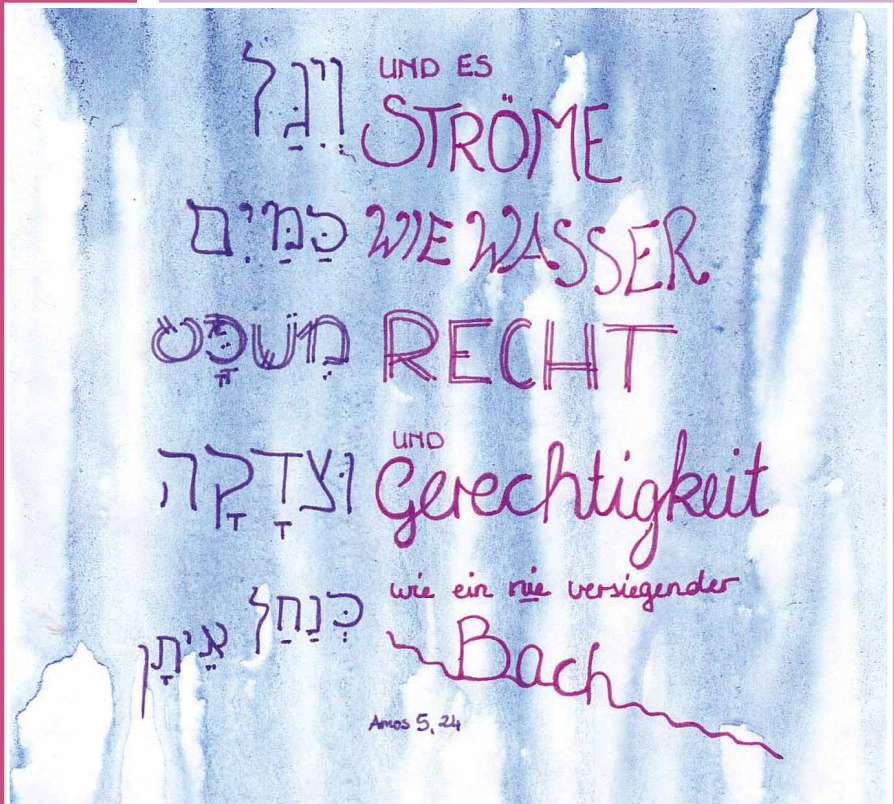 וְיִגַּל
UND ES
STRÖME
כַּמַּיִם
WIE WASSER
מִשְׁפָּט
RECHT
וּצְדָקָה
UND
Gerechtigkeit
כְּנַחַל אֵיתָן
wie ein nie versiegender
Bach
Amos 5, 24